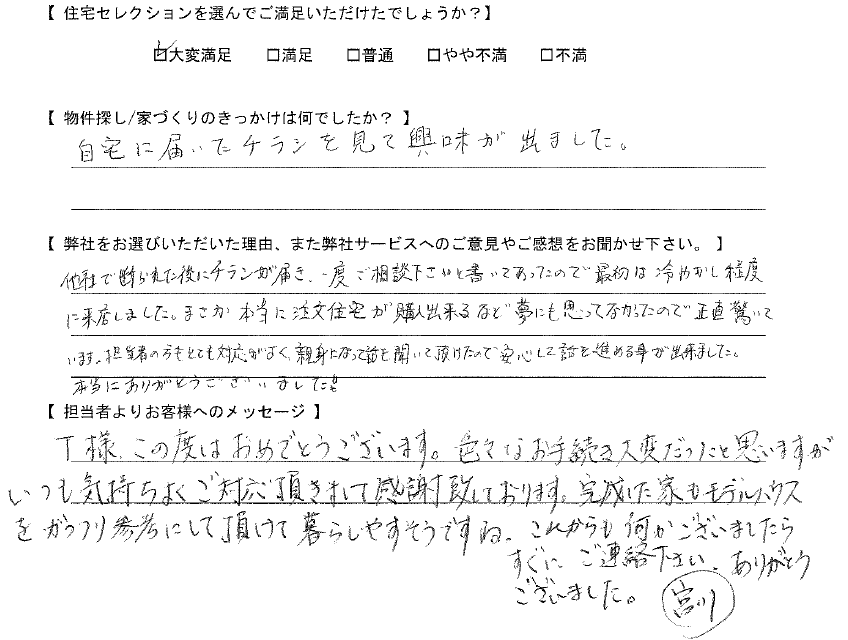 【 住宅セレクションを選んでご満足いただけたでしょうか?】
☑大変満足 □満足 □普通 □やや不満 □不満
【 物件探し/家づくりのきっかけは何でしたか? 】
自宅に届いたチラシを見て興味が出ました。
【 弊社をお選びいただいた理由、また弊社サービスへのご意見やご感想をお聞かせ下さい。 】
他社で断られた後にチラシが届き、一度ご相談下さいと書いてあったので最初は冷やかし程度
に来店しました。まさか本当に注文住宅が購入出来るなど夢にも思ってなかったので正直驚いて
います。担当者の方もとても対応がよく、親身になって話を聞いて頂けたので安心して話を進める事が出来ました。
本当にありがとうございました!!
【 担当者よりお客様へのメッセージ 】
T様、この度はおめでとうございます。色々なお手続き大変だったと思いますが
いつも気持ちよくご対応頂きまして感謝致しております。完成した家もモデルハウス
をガッツリ参考にして頂けて暮らしやすそうですね。これからも何かございましたら
すぐにご連絡下さい。ありがとう
ございました。 宮川